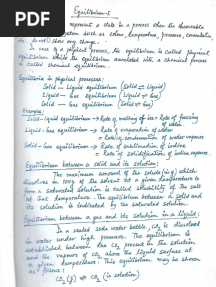 PDF
Equilibrium-S
represent a state in a process when the observable
system such as colour, temperature, pressure, concentration
do not show any change.
In case of a physical process, the equilibrium is called physical
equilibrium while the equilibrium associated with a chemical process
is called chemical equilibrium.
Equilibria in physical processes:
Solid - Liquid equilibrium (Solid ⇌ Liquid)
Liquid - Gas equilibrium (Liquid ⇌ Gas)
Solid - Gas equilibrium (Solid ⇌ Gas)
Examples:
Solid-liquid equilibrium → Rate of melting of ice = Rate of freezing
of water
Liquid-Gas equilibrium → Rate of evaporation of water
= Rate of condensation of water vapours
Solid-Gas equilibrium → Rate of sublimation of iodine
= Rate of solidification of iodine vapours.
Equilibrium between a solid and its solution:
The maximum amount of the solute (in g) which
dissolve in 100g of the solvent at a given temperature to
form a saturated solution is called solubility of the salt
at that temperature. The equilibrium between a solid and
its solution is indicated by the saturated solution.
Equilibrium between a gas and its solution in a liquid:
In a sealed soda water bottle, CO₂ is dissolved
in water under high pressure. The equilibrium is
established between the CO₂ present in the solution
and the vapours of CO₂ above the liquid surface at
a given temperature. This equilibrium may be shown
as follows:
CO₂ (g) ⇌ CO₂ (in solution)